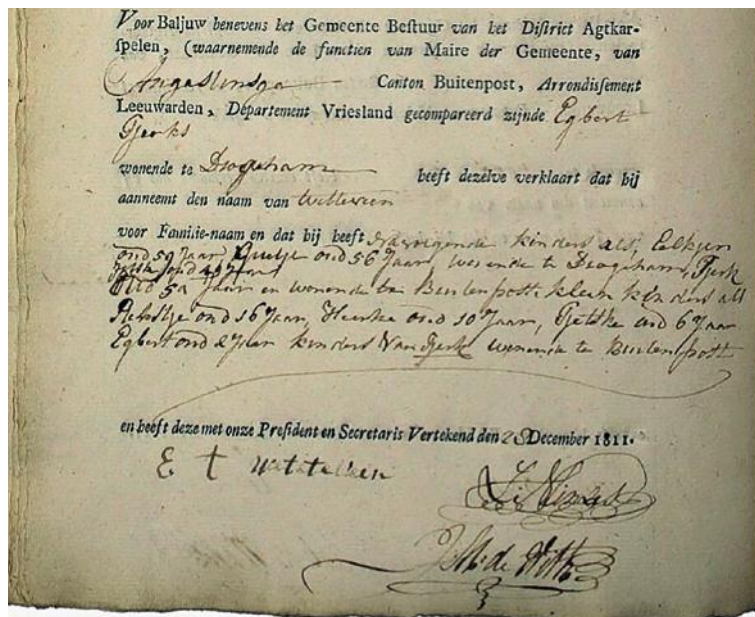 Voor Baljuw benevens het Gemeente Bestuur van het District Agtkar-
spelen, (waarnemende de functien van Maire der Gemeente, van
Canton Buitenpost, Arrondissement
Leeuwarden, Departement Vriesland gecompareerd zijnde Egbert
Tjerks
wonende te Drogeham heeft dezelve verklaart dat hij
aanneemt den naam van
voor Familie-naam en dat hij heeft navolgende kinders als, Eelkjen
oud 59 Jaar, oud 56 Jaar, wonende te Drogeham, Tjerk
oud 52 Jaar en wonende te Buitenpost, klein kinders als
oud 16 Jaar, oud 10 Jaar, Tjetske oud 6 Jaar
Egbert oud 2 Jaar kinders van Tjerk wonende te Buitenpost
en heeft deze met onze President en Secretaris Vertekend den 28 December 1811.
E T
de With